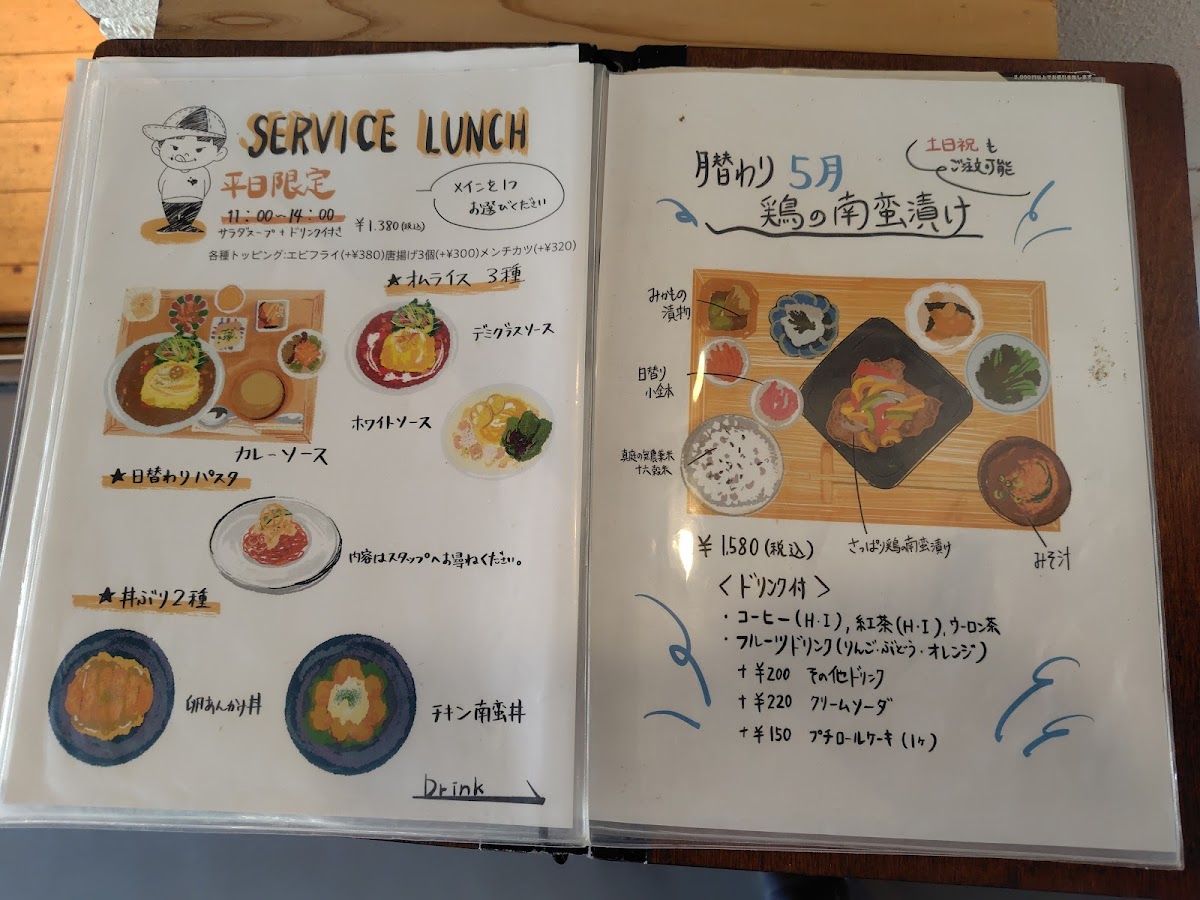 SERVICE LUNCH
平日限定
11:00〜14:00
サラダスープ+ドリンク付き
¥1.380(税込)
メインを1つ
お選びください
各種トッピング:エビフライ(+¥380)唐揚げ3個(+¥300)メンチカツ(+¥320)
★オムライス 3種
デミグラスソース
ホワイトソース
カレーソース
★日替わりパスタ
内容はスタッフへお尋ねください。
★丼ぶり2種
卵あんかけ丼
チキン南蛮丼
Drink
月替わり 5月
土日祝も
ご注文可能
鶏の南蛮漬け
みかもの
漬物
日替り
小鉢
真庭の無農薬米
十六穀米
¥1.580(税込)
さっぱり鶏の南蛮漬け
みそ汁
<ドリンク付>
・コーヒー(H・I),紅茶(H・I),ウーロン茶
・フルーツドリンク(りんご・ぶどう・オレンジ)
+¥200 その他ドリンク
+¥220 クリームソーダ
+¥150 プチロールケーキ(1ヶ)